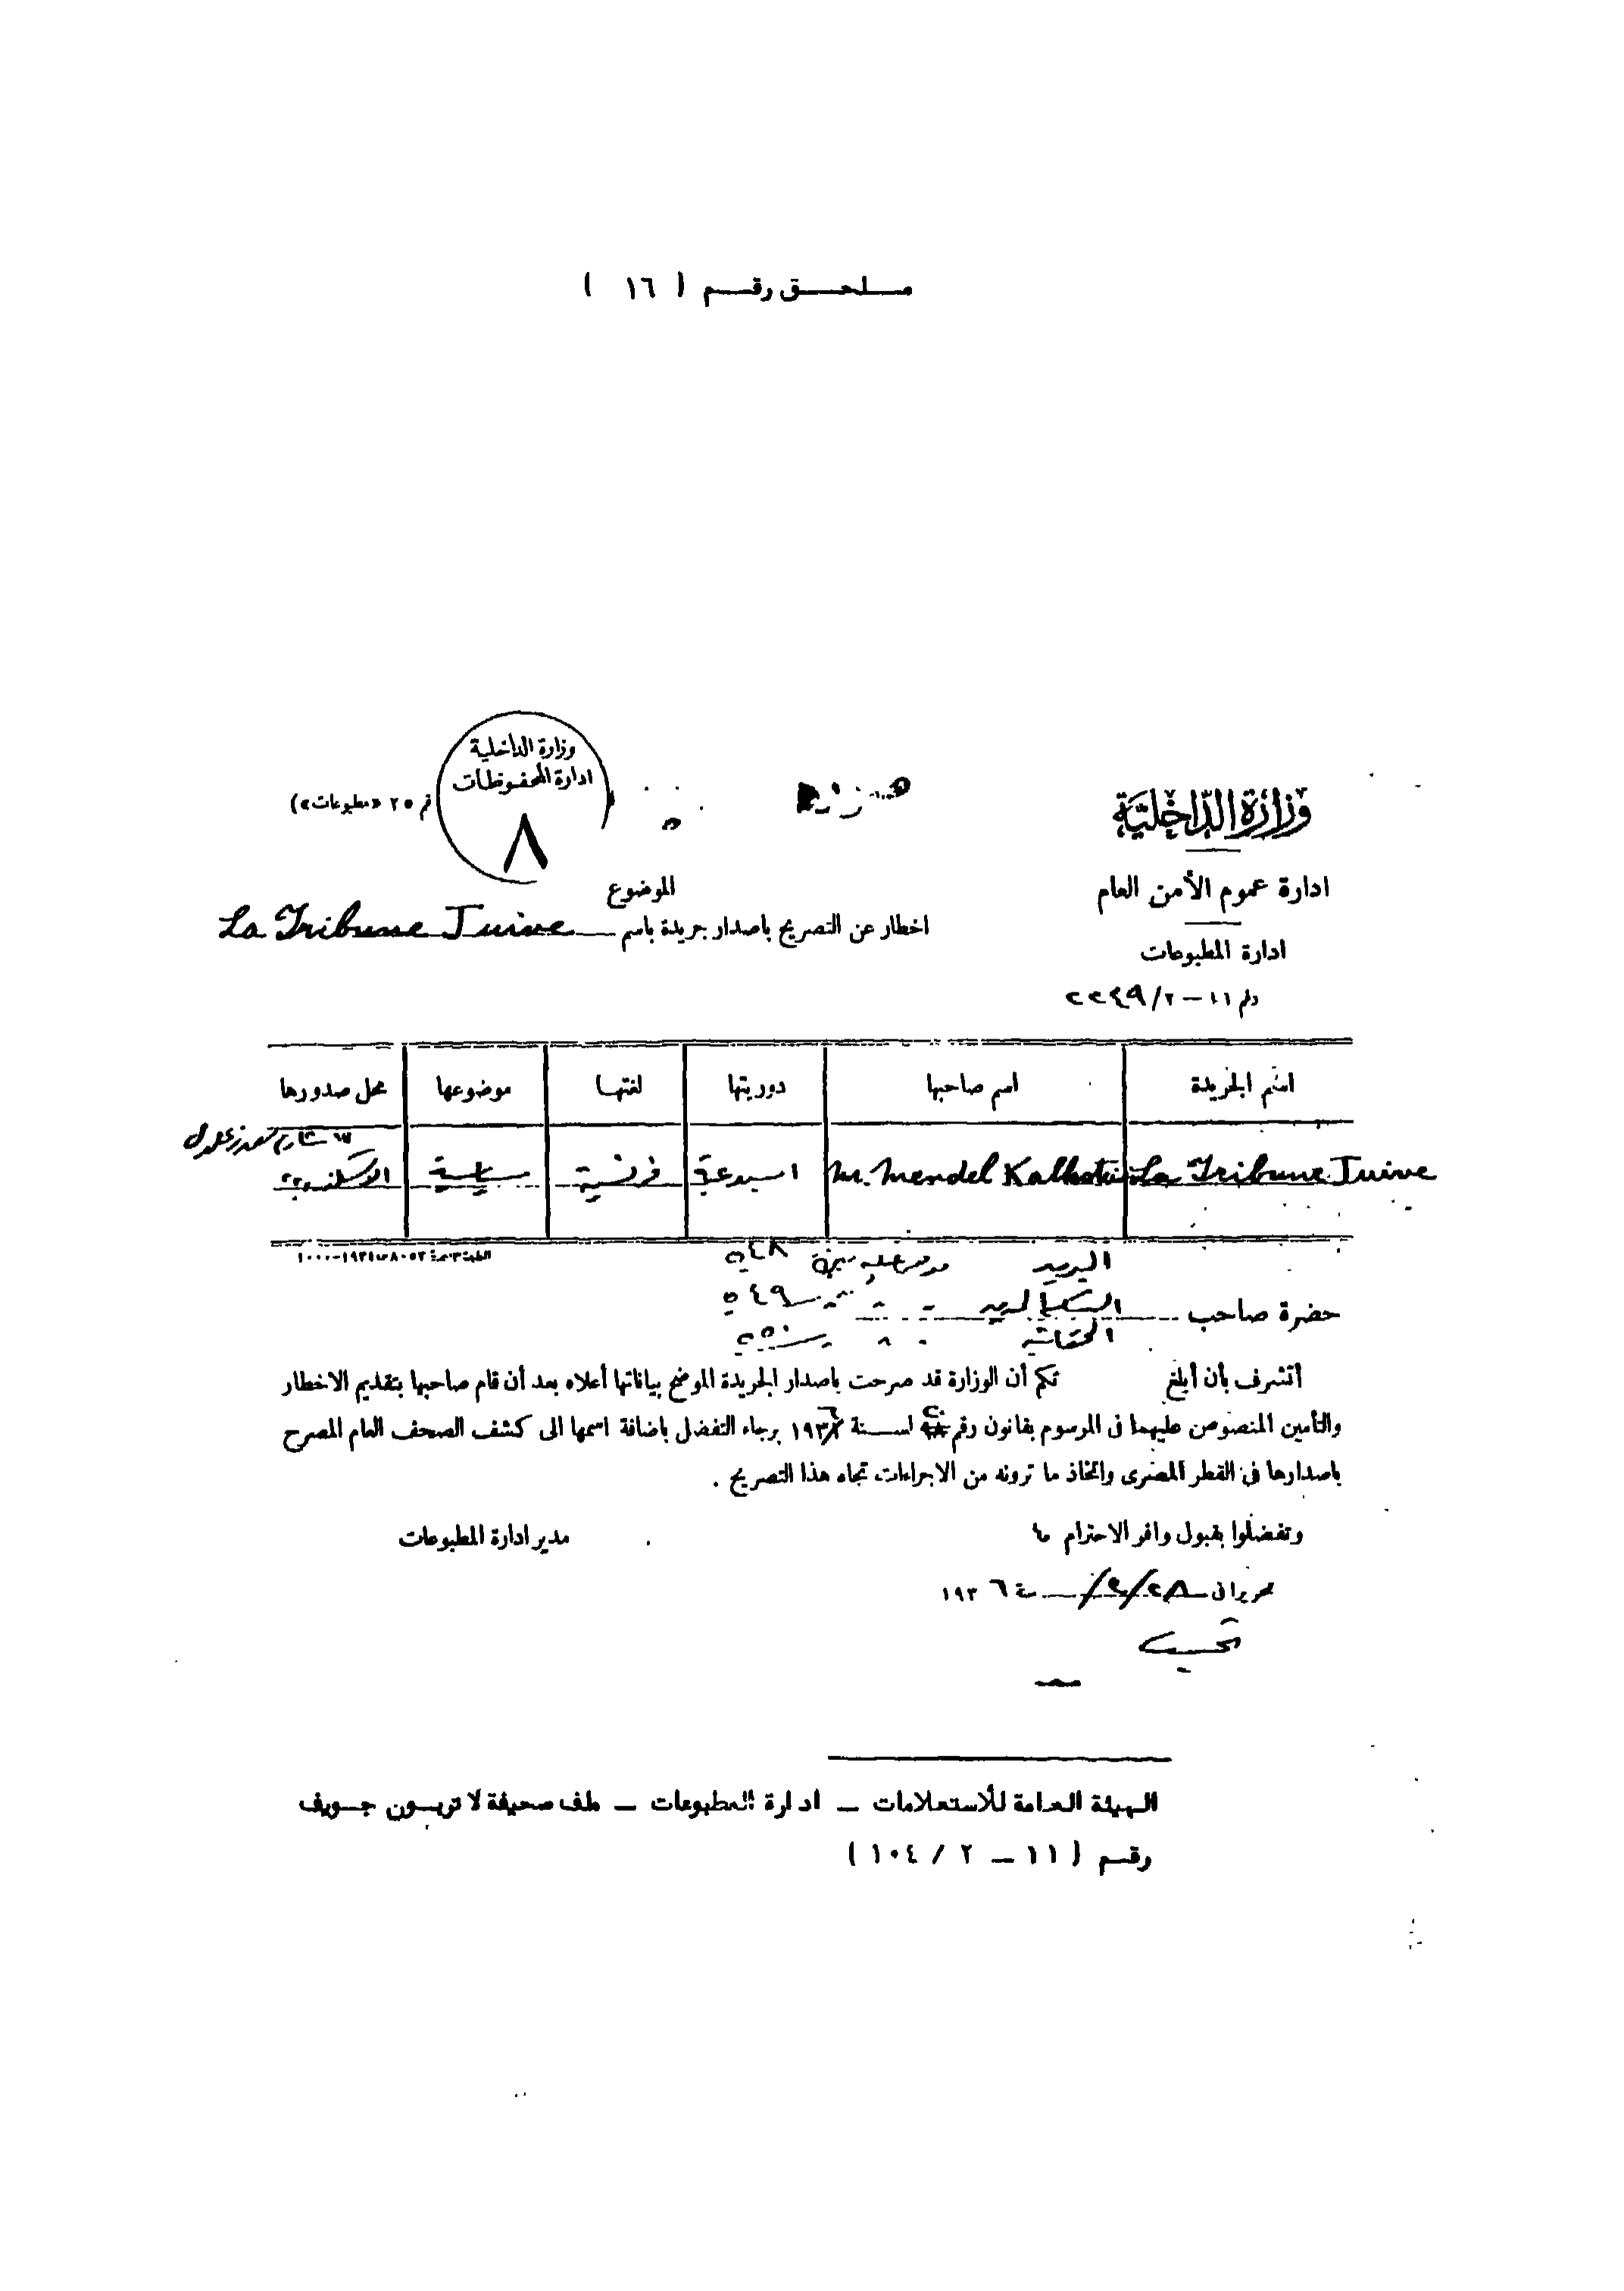 ملحق رقم ( ١٦ )
وزارة الداخلية
ادارة المحفوظات
٨
٢٥ «مطبوعات»)
وزارة الداخلية
ادارة عموم الأمن العام
ادارة المطبوعات
رقم ١١ — ٢/٢٢٤٩
الموضوع
اخطار عن التصريح باصدار جريدة باسم La Tribune Juive
اسم الجريدة | اسم صاحبها | دوريتها | لغتها | موضوعها | محل صدورها
La Tribune Juive | M. Mendel | اسبوعية | فرنسية | سياسية | شارع سعد زغلول الاسكندرية
البريد ٥٤٨
حضرة صاحب ٥٤٩
٥٥٠
أتشرف بأن أبلغ تكم أن الوزارة قد صرحت باصدار الجريدة الموضح بياناتها أعلاه بعد أن قام صاحبها بتقديم الاخطار
والتأمين المنصوص عليهما فى المرسوم بقانون رقم لسنة ١٩٣٦ برجاء التفضل باضافة اسمها الى كشف الصحف العام المصرح
باصدارها فى القطر المصرى واتخاذ ما ترونه من الاجراءات تجاه هذا التصريح .
وتفضلوا بقبول وافر الاحترام
مدير ادارة المطبوعات
تحريرا فى ٢٨/٤/ سنة ١٩٣٦
الهيئة العامة للأستعلامات — ادارة المطبوعات — ملف صحيفة لا تربون جويف
رقم ( ١١ — ٢ / ١٠٤ )